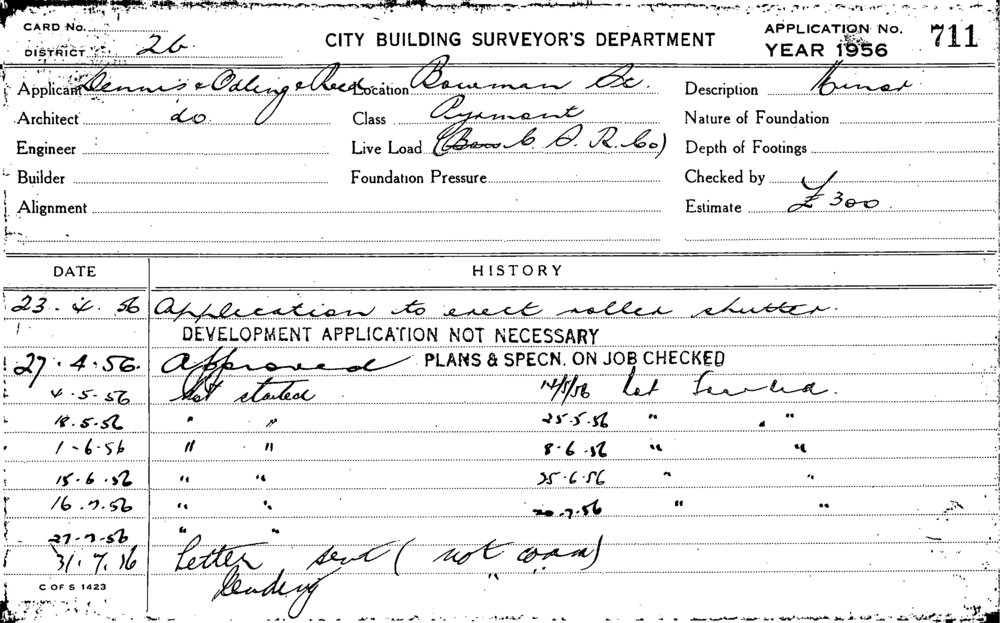 CARD No.
DISTRICT 26
CITY BUILDING SURVEYOR'S DEPARTMENT
APPLICATION No. 711
YEAR 1956
Applicant Dennis & Oaling & Reed Location Bowman St. Description Minor
Architect do Class Pyrmont Nature of Foundation
Engineer Live Load ( C. S. R. Co) Depth of Footings
Builder Foundation Pressure Checked by
Alignment Estimate £300
DATE HISTORY
23.4.56 Application to erect roller shutter.
DEVELOPMENT APPLICATION NOT NECESSARY
27.4.56. Approved PLANS & SPECN. ON JOB CHECKED
4.5.56 Not started 14/5/56 Not Started.
18.5.56 " " 25.5.56 " "
1-6-56 " " 8.6.56 " "
15.6.56 " " 25.6.56 " "
16.7.56 " " 20.7.56 " "
27.7.56 " "
31.7.56 Letter sent (not com)
Pending " "
C OF S 1423